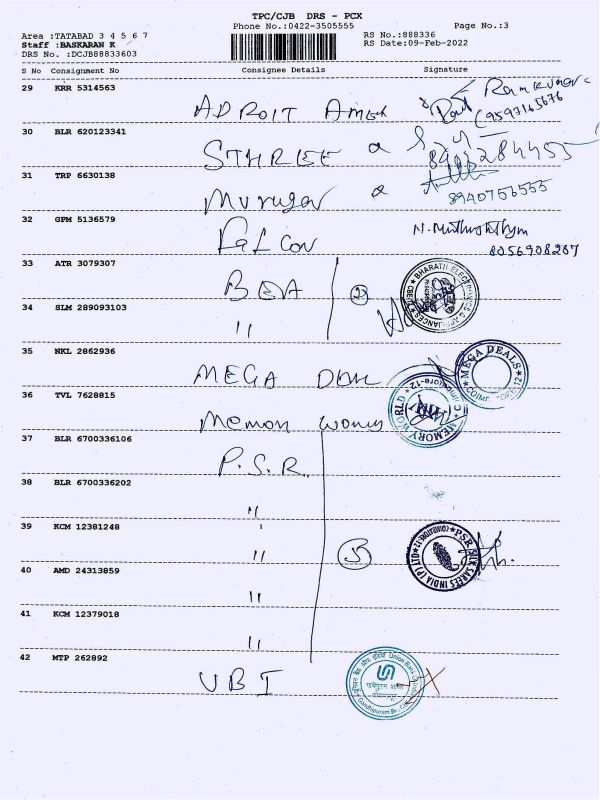 TPC/CJB DRS - PCX
Phone No.:0422-3505555 Page No.:3
Area :TATABAD 3 4 5 6 7 RS No.:888336
Staff :BASKARAN K RS Date:09-Feb-2022
DRS No. :DCJB88833603
S No Consignment No Consignee Details Signature
29 KRR 5314563
ADROIT Ramkumar
9597165676
30 BLR 620123341
STHREE
31 TRP 6630138
Murugan 8940756555
32 GPM 5136579
Falcon 8056908267
33 ATR 3079307
BEA 2 BHARATH ELECTRONICS & APPLIANCES
34 SLM 289093103
"
35 NKL 2862936
MEGA MEGA DEALS
36 TVL 7628815
MEMORY WORLD
37 BLR 6700336106
P.S.R.
38 BLR 6700336202
"
39 KCM 12381248
" 5 PSR SILK SAREES INDIA (P) LTD
40 AMD 24313859
"
41 KCM 12379018
"
42 MTP 262892
UBI Union Bank